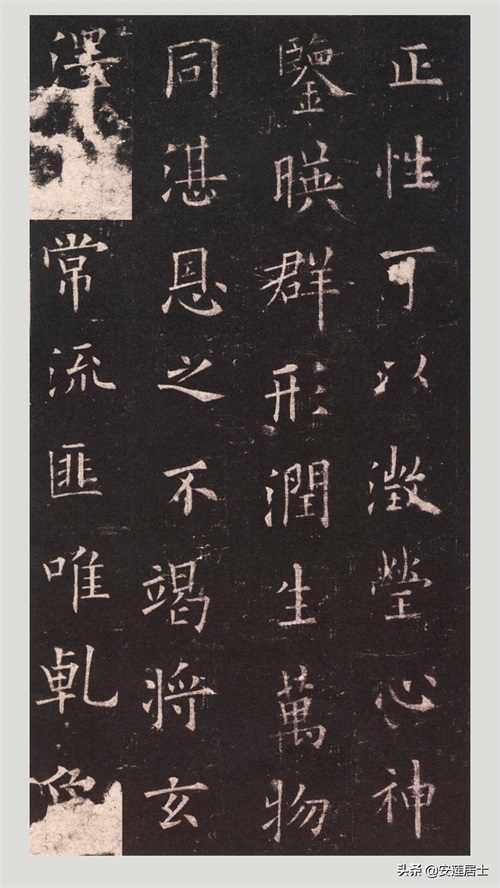 正性可以澂瑩心神
鑒暎群形潤生萬物
同湛恩之不竭將玄
澤常流匪唯乹象
头条 @安莲居士